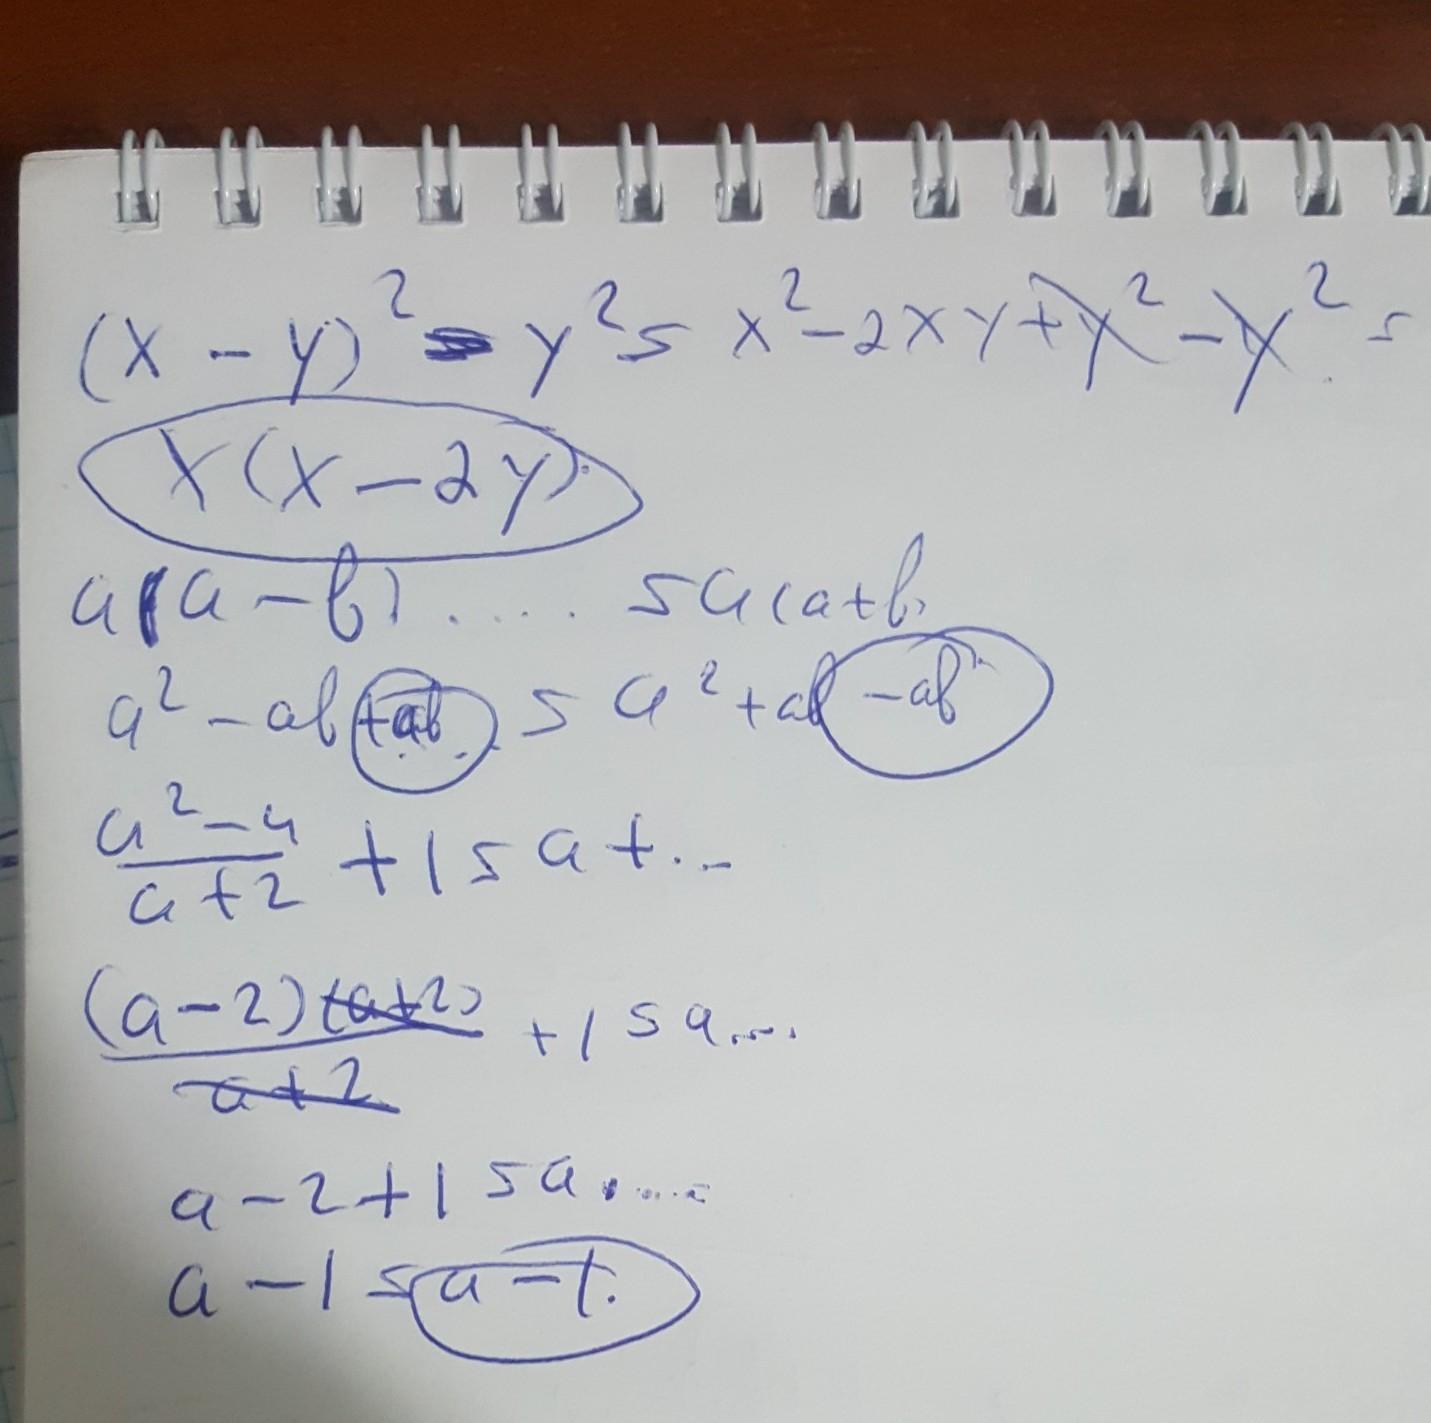 (x - y)² - y² = x² - 2xy + y² - y² =
x(x - 2y)
a(a - b) .... = a(a + b)
a² - ab + ab = a² + ab - ab
a² - 4 / a + 2 + 1 = a + ...
(a - 2)(a + 2) / a + 2 + 1 = a ....
a - 2 + 1 = a .....
a - 1 = a - 1.